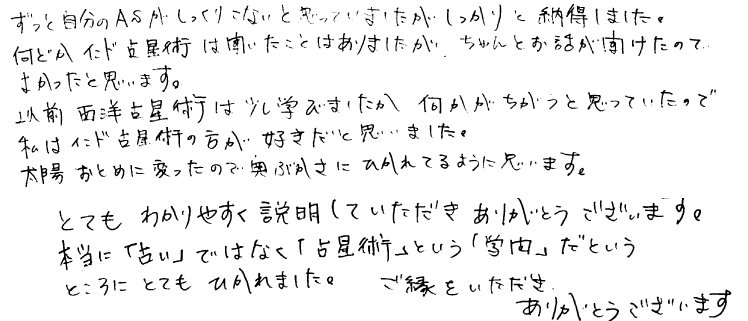 ずっと自分のASがしっくりこないと思っていましたが しっかりと納得しました。
何どか インド占星術は聞いたことはありましたが、ちゃんとお話が聞けたので
よかったと思います。
以前 西洋占星術は少し学びましたが 何かがちがうと思っていたので
私はインド占星術の方が好きだと思いました。
太陽おとめに変ったので奥ぶかさにひかれてるように思います。
とても わかりやすく説明していただき ありがとうございます。
本当に「占い」ではなく「占星術」という「学問」だという
ところにとてもひかれました。 ご縁をいただき
ありがとうございます